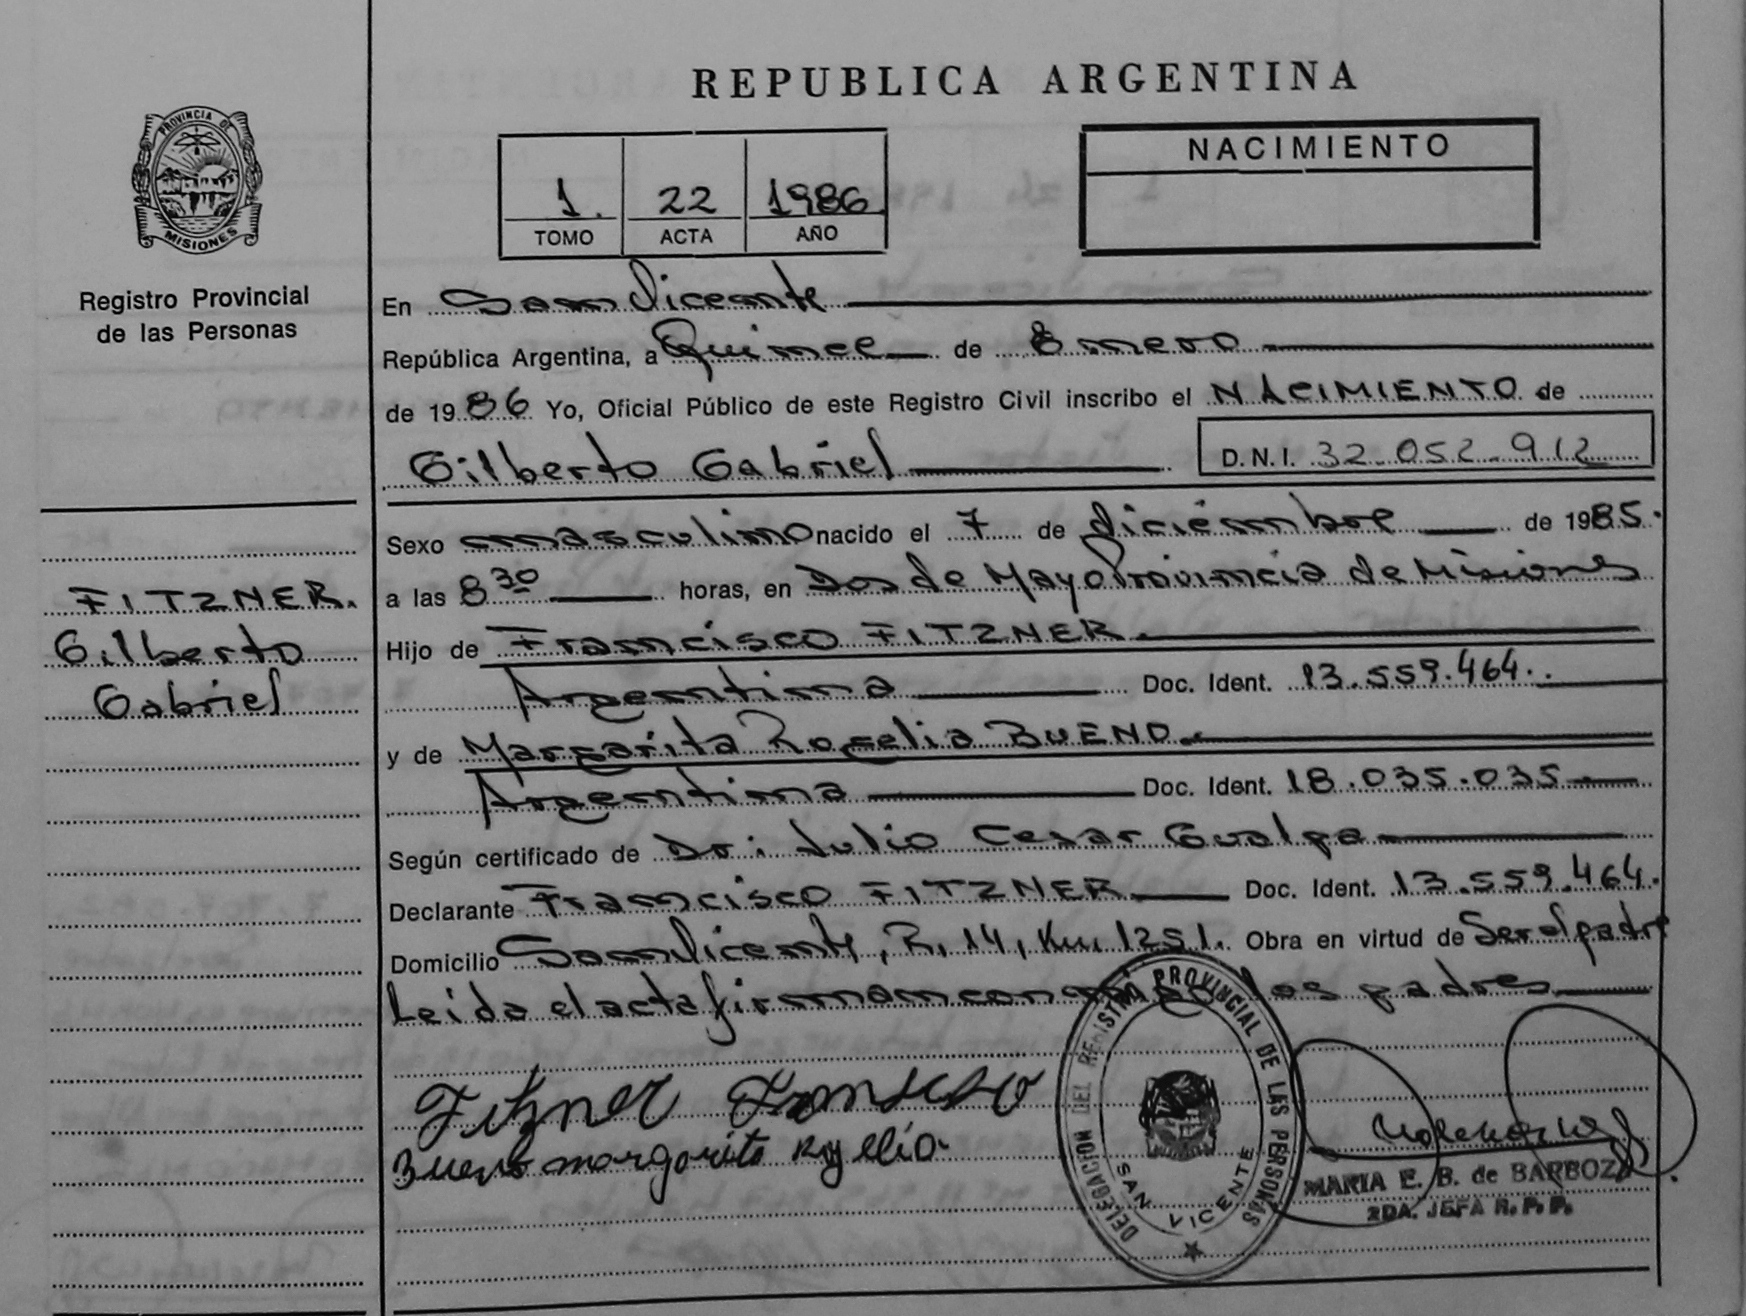 REPUBLICA ARGENTINA
PROVINCIA DE
MISIONES
Registro Provincial
de las Personas
1. 22 1986
TOMO ACTA AÑO
NACIMIENTO
En San Vicente
República Argentina, a Quince de Enero
de 1986 Yo, Oficial Público de este Registro Civil inscribo el NACIMIENTO de
Gilberto Gabriel D.N.I. 32.052.912
Sexo masculino nacido el 7 de diciembre de 1985.
a las 8 30 horas, en Dos de Mayo Provincia de Misiones
Hijo de Francisco FITZNER.
Argentina Doc. Ident. 13.559.464.
y de Margarita Rogelia BUENO.
Argentina Doc. Ident. 18.035.035
Según certificado de Dr: Julio Cesar Gualpa
Declarante Francisco FITZNER Doc. Ident. 13.559.464.
Domicilio San Vicente, R. 14, Km. 1251. Obra en virtud de Ser el padre
Leida el acta firman conmigo los padres
FITZNER.
Gilberto
Gabriel
Fitzner Francisco
Bueno margarita Rogelia.
DELEGACION DEL REGISTRO PROVINCIAL DE LAS PERSONAS
SAN VICENTE
MARIA E. B. de BARBOZA
2DA. JEFA R. P. P.